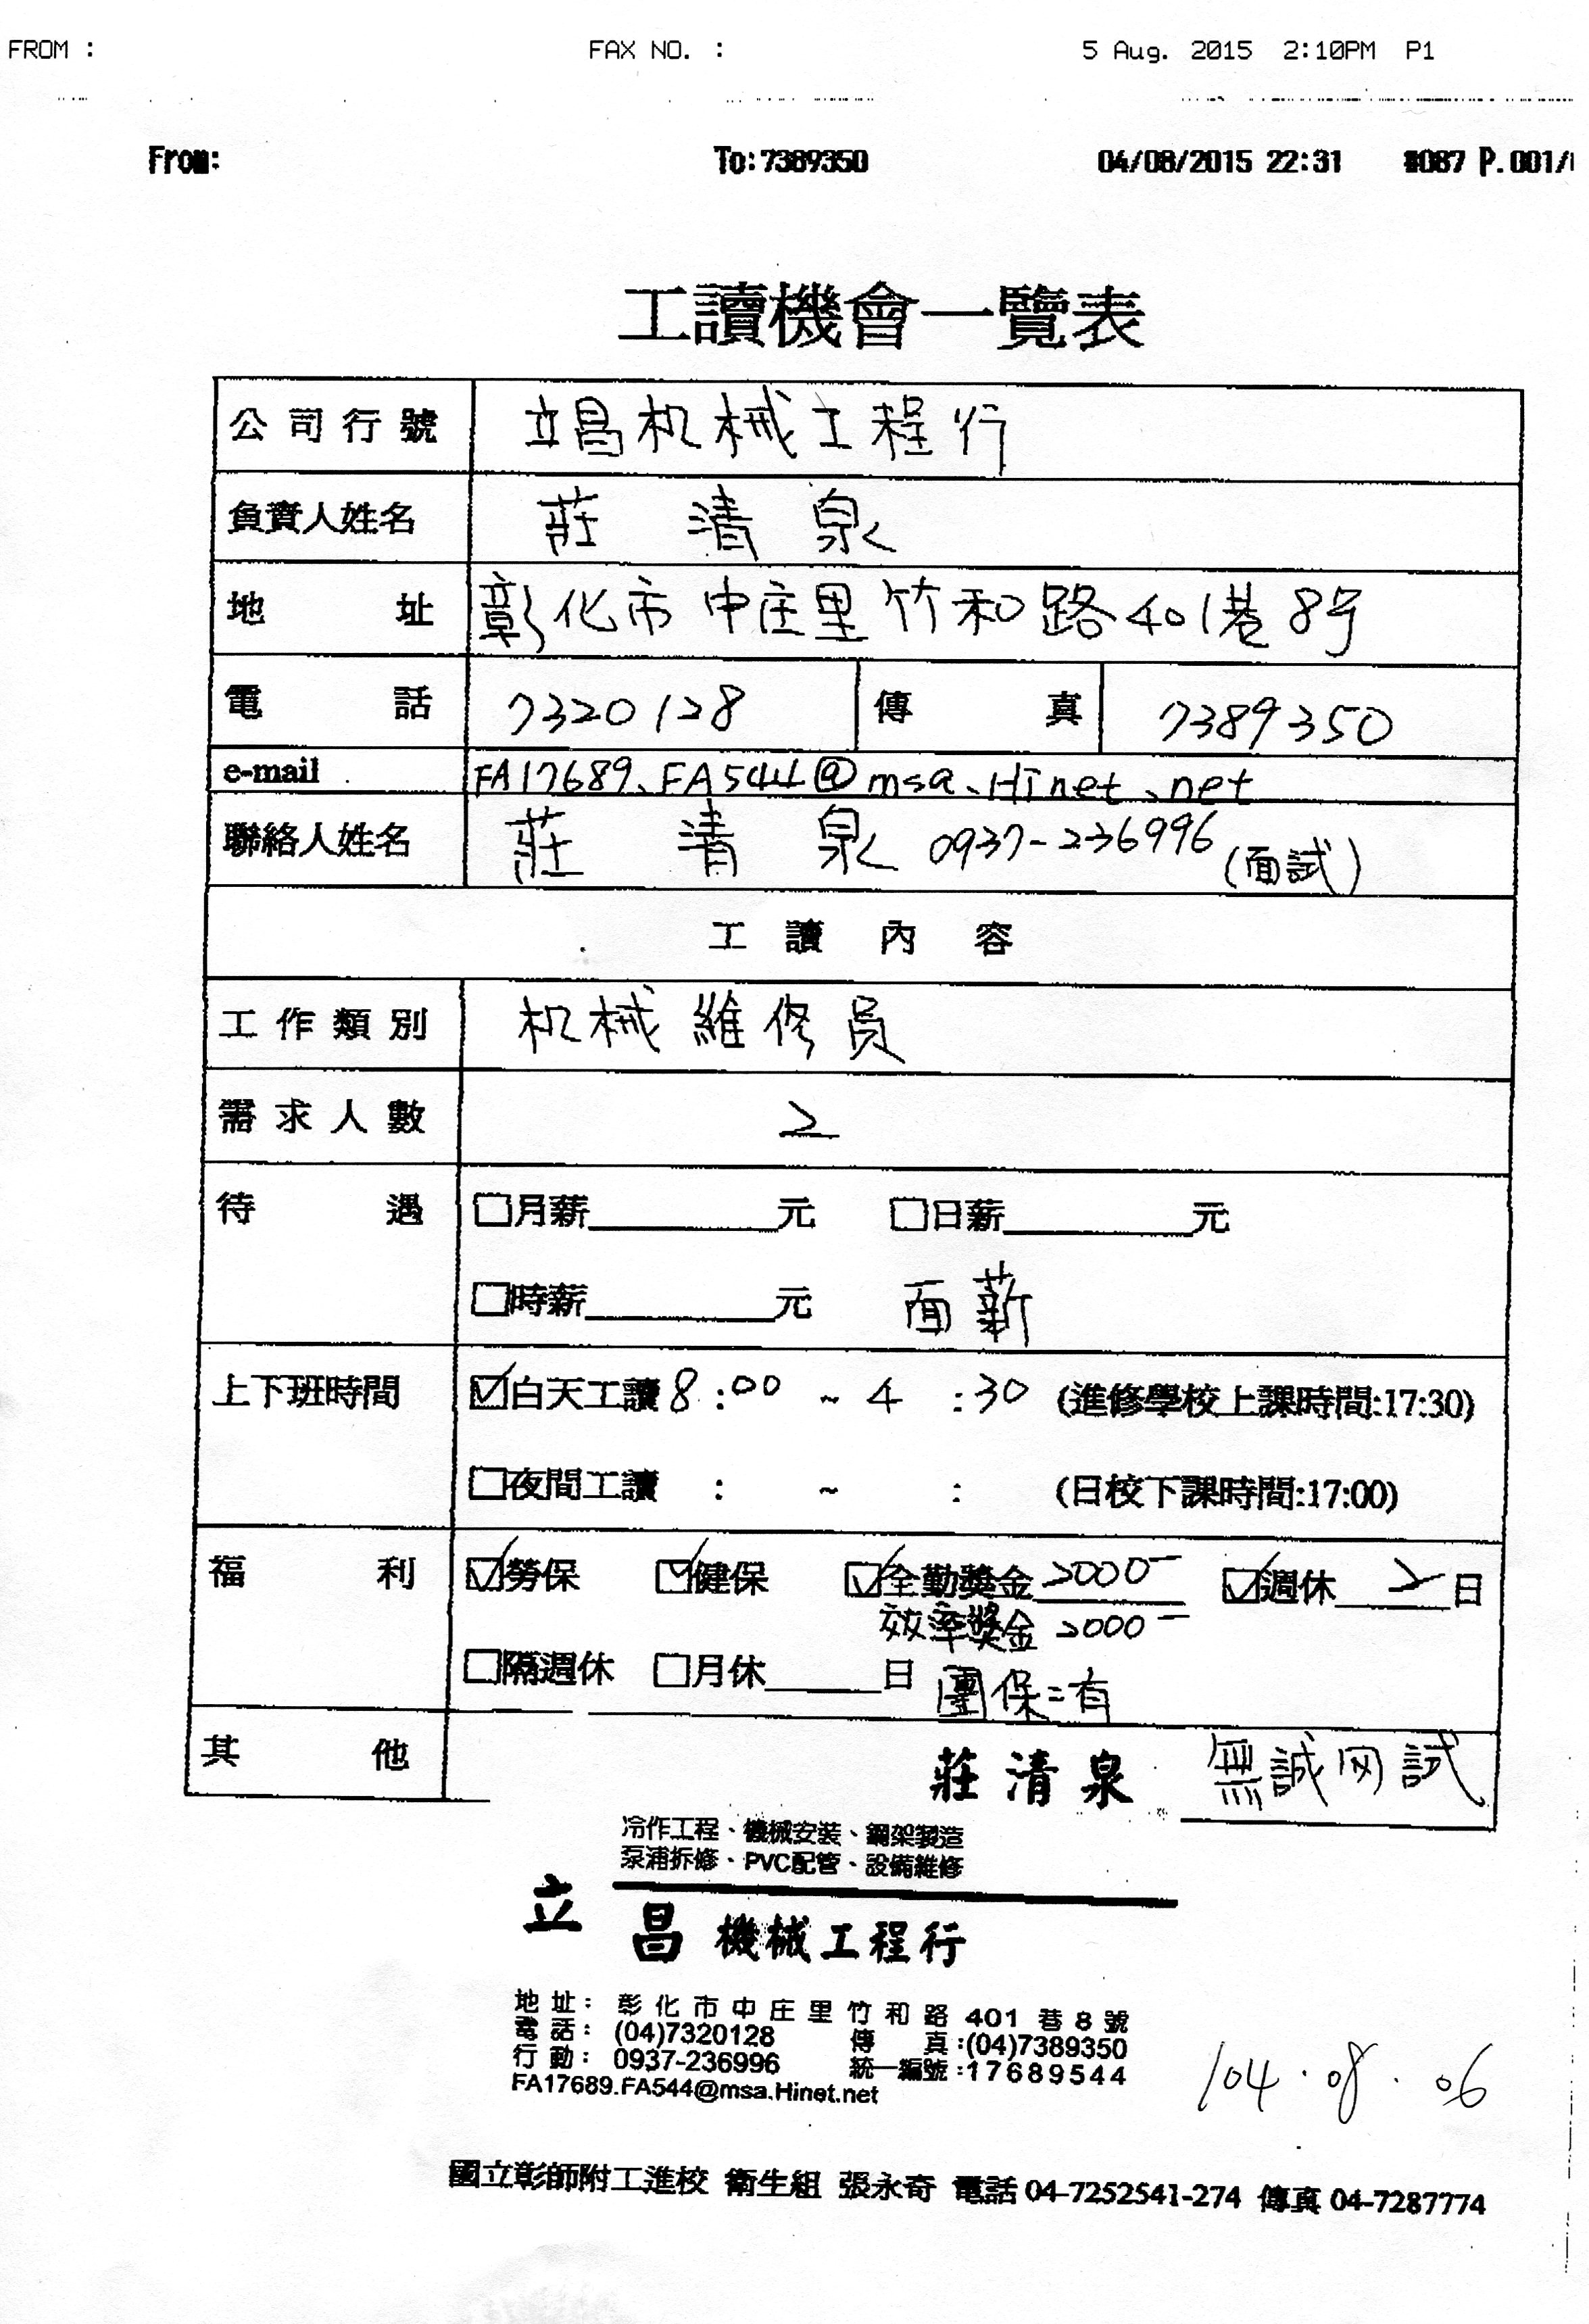 FROM : FAX NO. : 5 Aug. 2015 2:10PM P1
From: To:7389350 04/08/2015 22:31 #087 P.001/
工讀機會一覽表
公司行號 立昌机械工程行
負責人姓名 莊清泉
地址 彰化市中庄里竹和路401巷8号
電話 7320128 傳真 7389350
e-mail FA17689.FA544@msa.Hinet.net
聯絡人姓名 莊清泉 0937-236996 (面試)
工讀內容
工作類別 机械維修員
需求人數 2
待遇 □月薪 元 □日薪 元
□時薪 元 面薪
上下班時間 ☑白天工讀 8:00 ~ 4:30 (進修學校上課時間:17:30)
□夜間工讀 : ~ : (日校下課時間:17:00)
福利 ☑勞保 ☑健保 ☑全勤獎金 2000- ☑週休 2 日
效率獎金 2000-
□隔週休 □月休 日 團保:有
其他 莊清泉 無誠勿試
冷作工程、機械安裝、鋼架製造
泵浦拆修、PVC配管、設備維修
立昌機械工程行
地址: 彰化市中庄里竹和路401巷8號
電話: (04)7320128 傳真:(04)7389350
行動: 0937-236996 統一編號:17689544
FA17689.FA544@msa.Hinet.net
104.08.06
國立彰師附工進校 衛生組 張永奇 電話 04-7252541-274 傳真 04-7287774